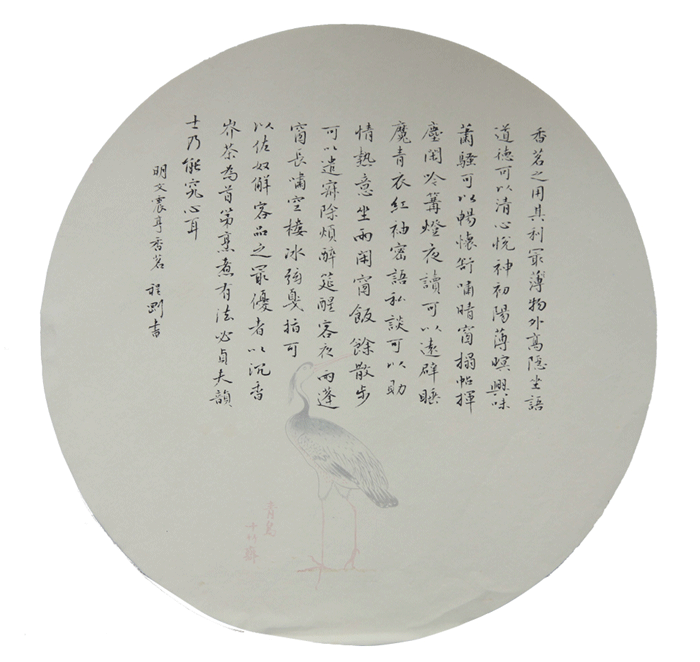 香茗之用其利冣薄物外高隱坐語
道德可以清心悦神初陽薄暝興味
蕭騷可以暢懷舒嘯晴窗搨帖揮
塵閑吟篝燈夜讀可以遠辟睡
魔青衣紅袖密語私談可以助
情熱意坐雨閑窗飯餘散步
可以遣寂除煩醉筵醒客夜雨蓬
窗長嘯空樓冰弦戛指可
以佐奴解客品之冣優者以沉香
岕茶為首第烹煮有法必貞夫韻
士乃能究心耳
明文震亨香茗 程剛書
十竹齋